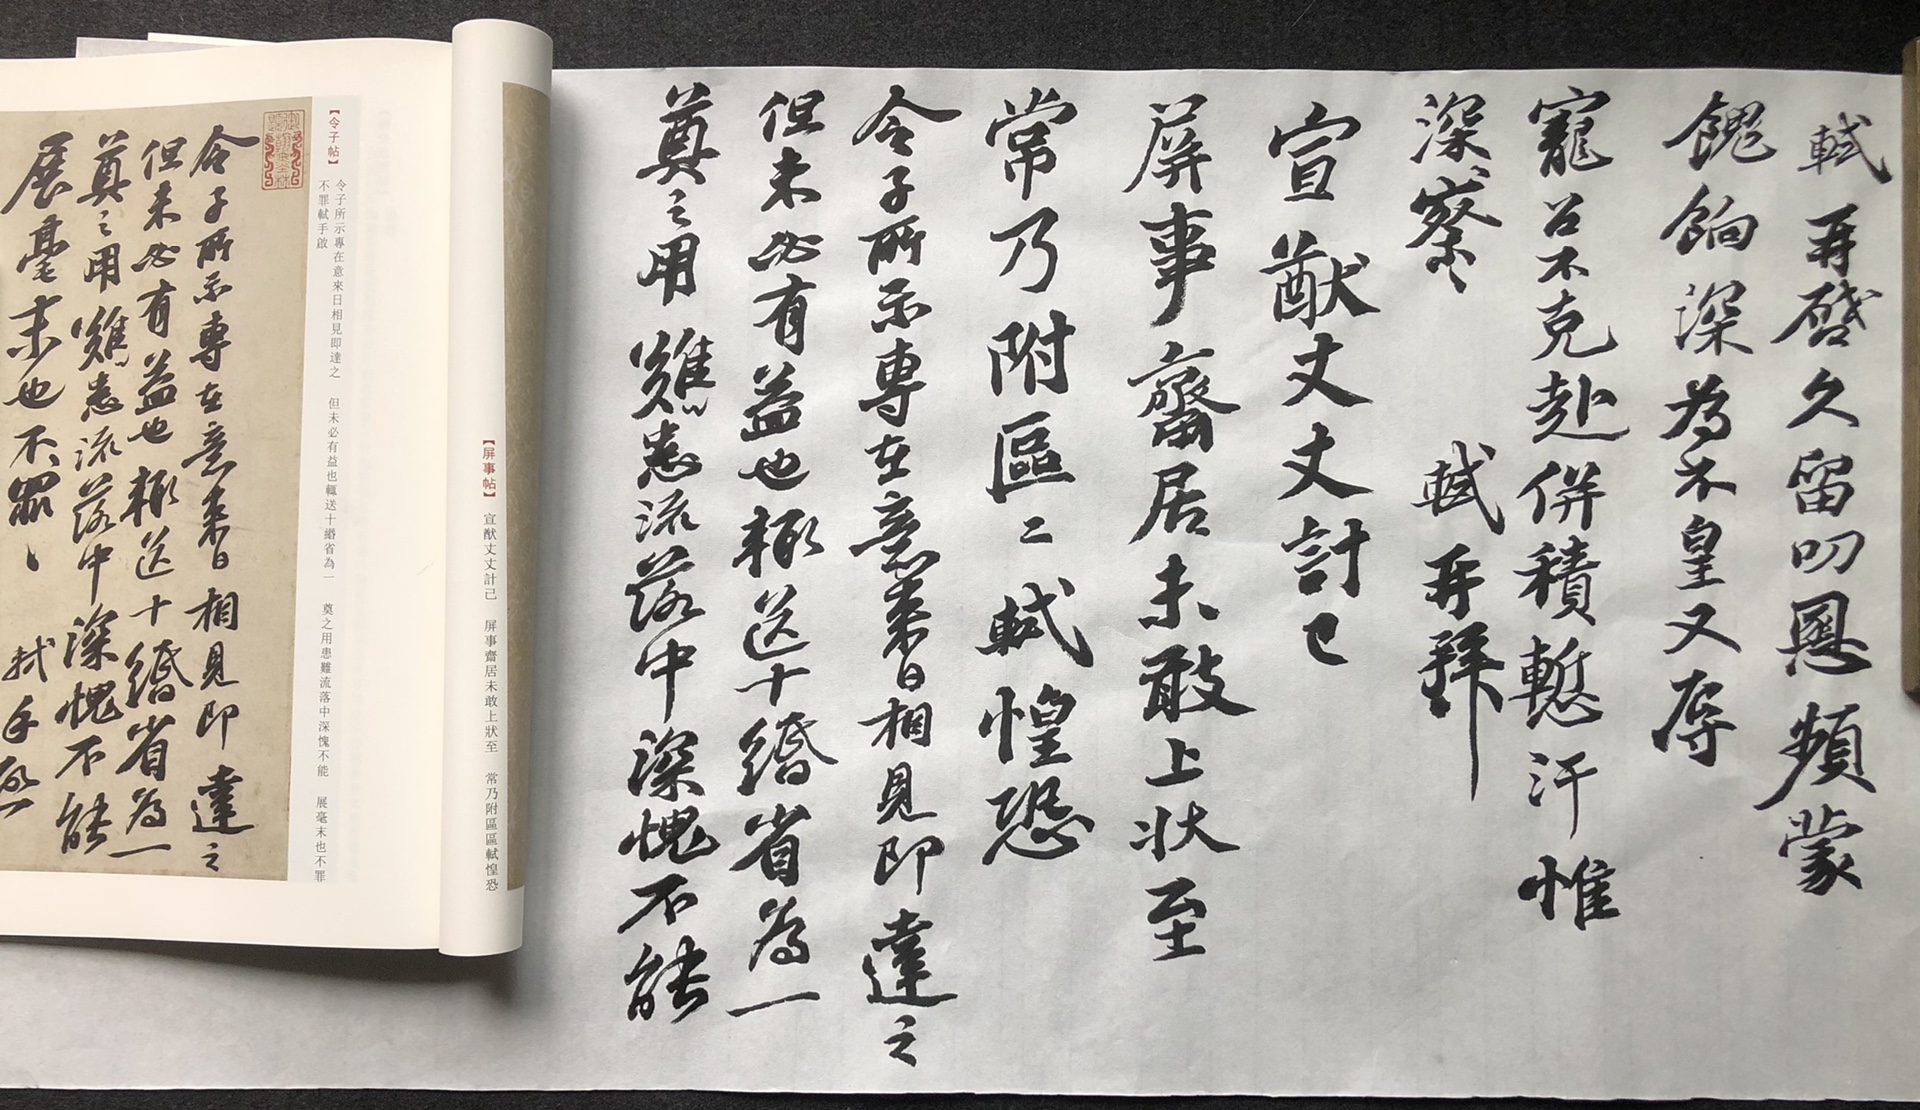 軾再啓久留叨恩頻蒙
餽餉深為不皇又辱
寵召不克赴併積慙汗惟
深察
軾再拜
宣猷丈丈計已
屏事齋居未敢上狀至
常乃附區二軾惶恐
令子所示專在意來日相見即達之
但未必有益也輙送十緡省為一
奠之用難患流落中深愧不能
【屏事帖】 宣猷丈丈計己 屏事齋居未敢上狀至 常乃附區區軾惶恐
【令子帖】 令子所示專在意來日相見即達之 但未必有益也輒送十緡省為一 奠之用患難流落中深愧不能 展毫末也不罪
不罪軾手啟
令子所示專在意來日相見即達之
但未必有益也輙送十緡省為一
奠之用難患流落中深愧不能
展毫末也不罪
軾手啟